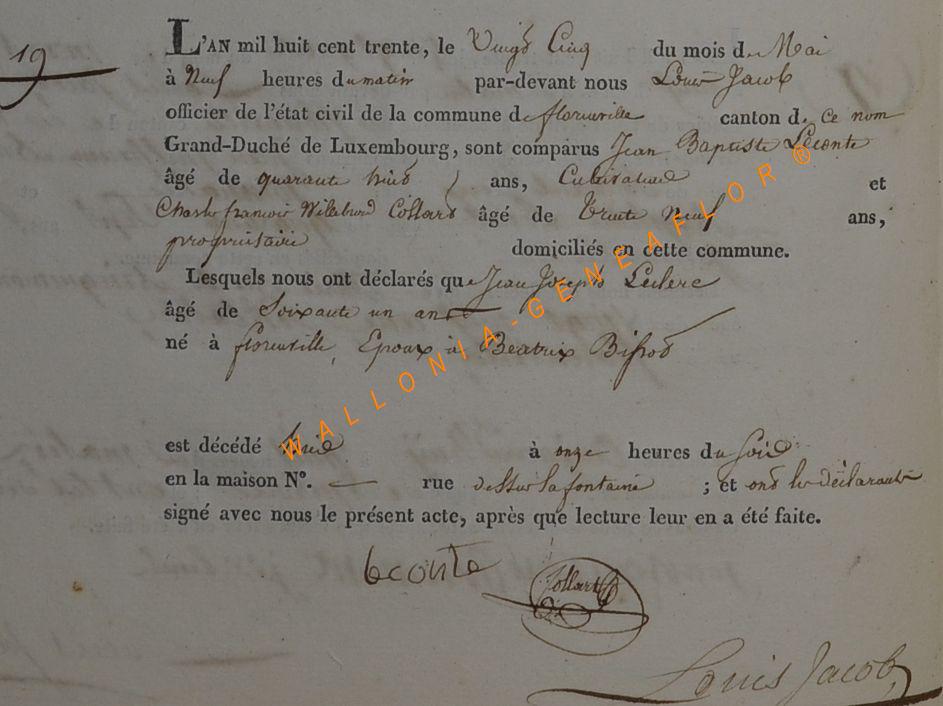 19
L'AN mil huit cent trente, le Vingt Cinq du mois de Mai
à Neuf heures du matin par-devant nous Louis Jacob
officier de l'état civil de la commune de florenville canton de ce nom
Grand-Duché de Luxembourg, sont comparus Jean Baptiste Leconte
âgé de quarante huit ans, Cultivateur et
Charles françois Willebord Collard âgé de trente Neuf ans,
propriétaire domiciliés en cette commune.
Lesquels nous ont déclarés que Jean Joseph Leclerc
âgé de Soixante un ans
né à florenville, Epoux à Beatrix
est décédé hier à onze heures du Soir
en la maison N°. — rue dessur la fontaine ; et ont les déclarants
signé avec nous le présent acte, après que lecture leur en a été faite.
Leconte Collart
Louis Jacob
WALLONIA-GENEAFLOR ®